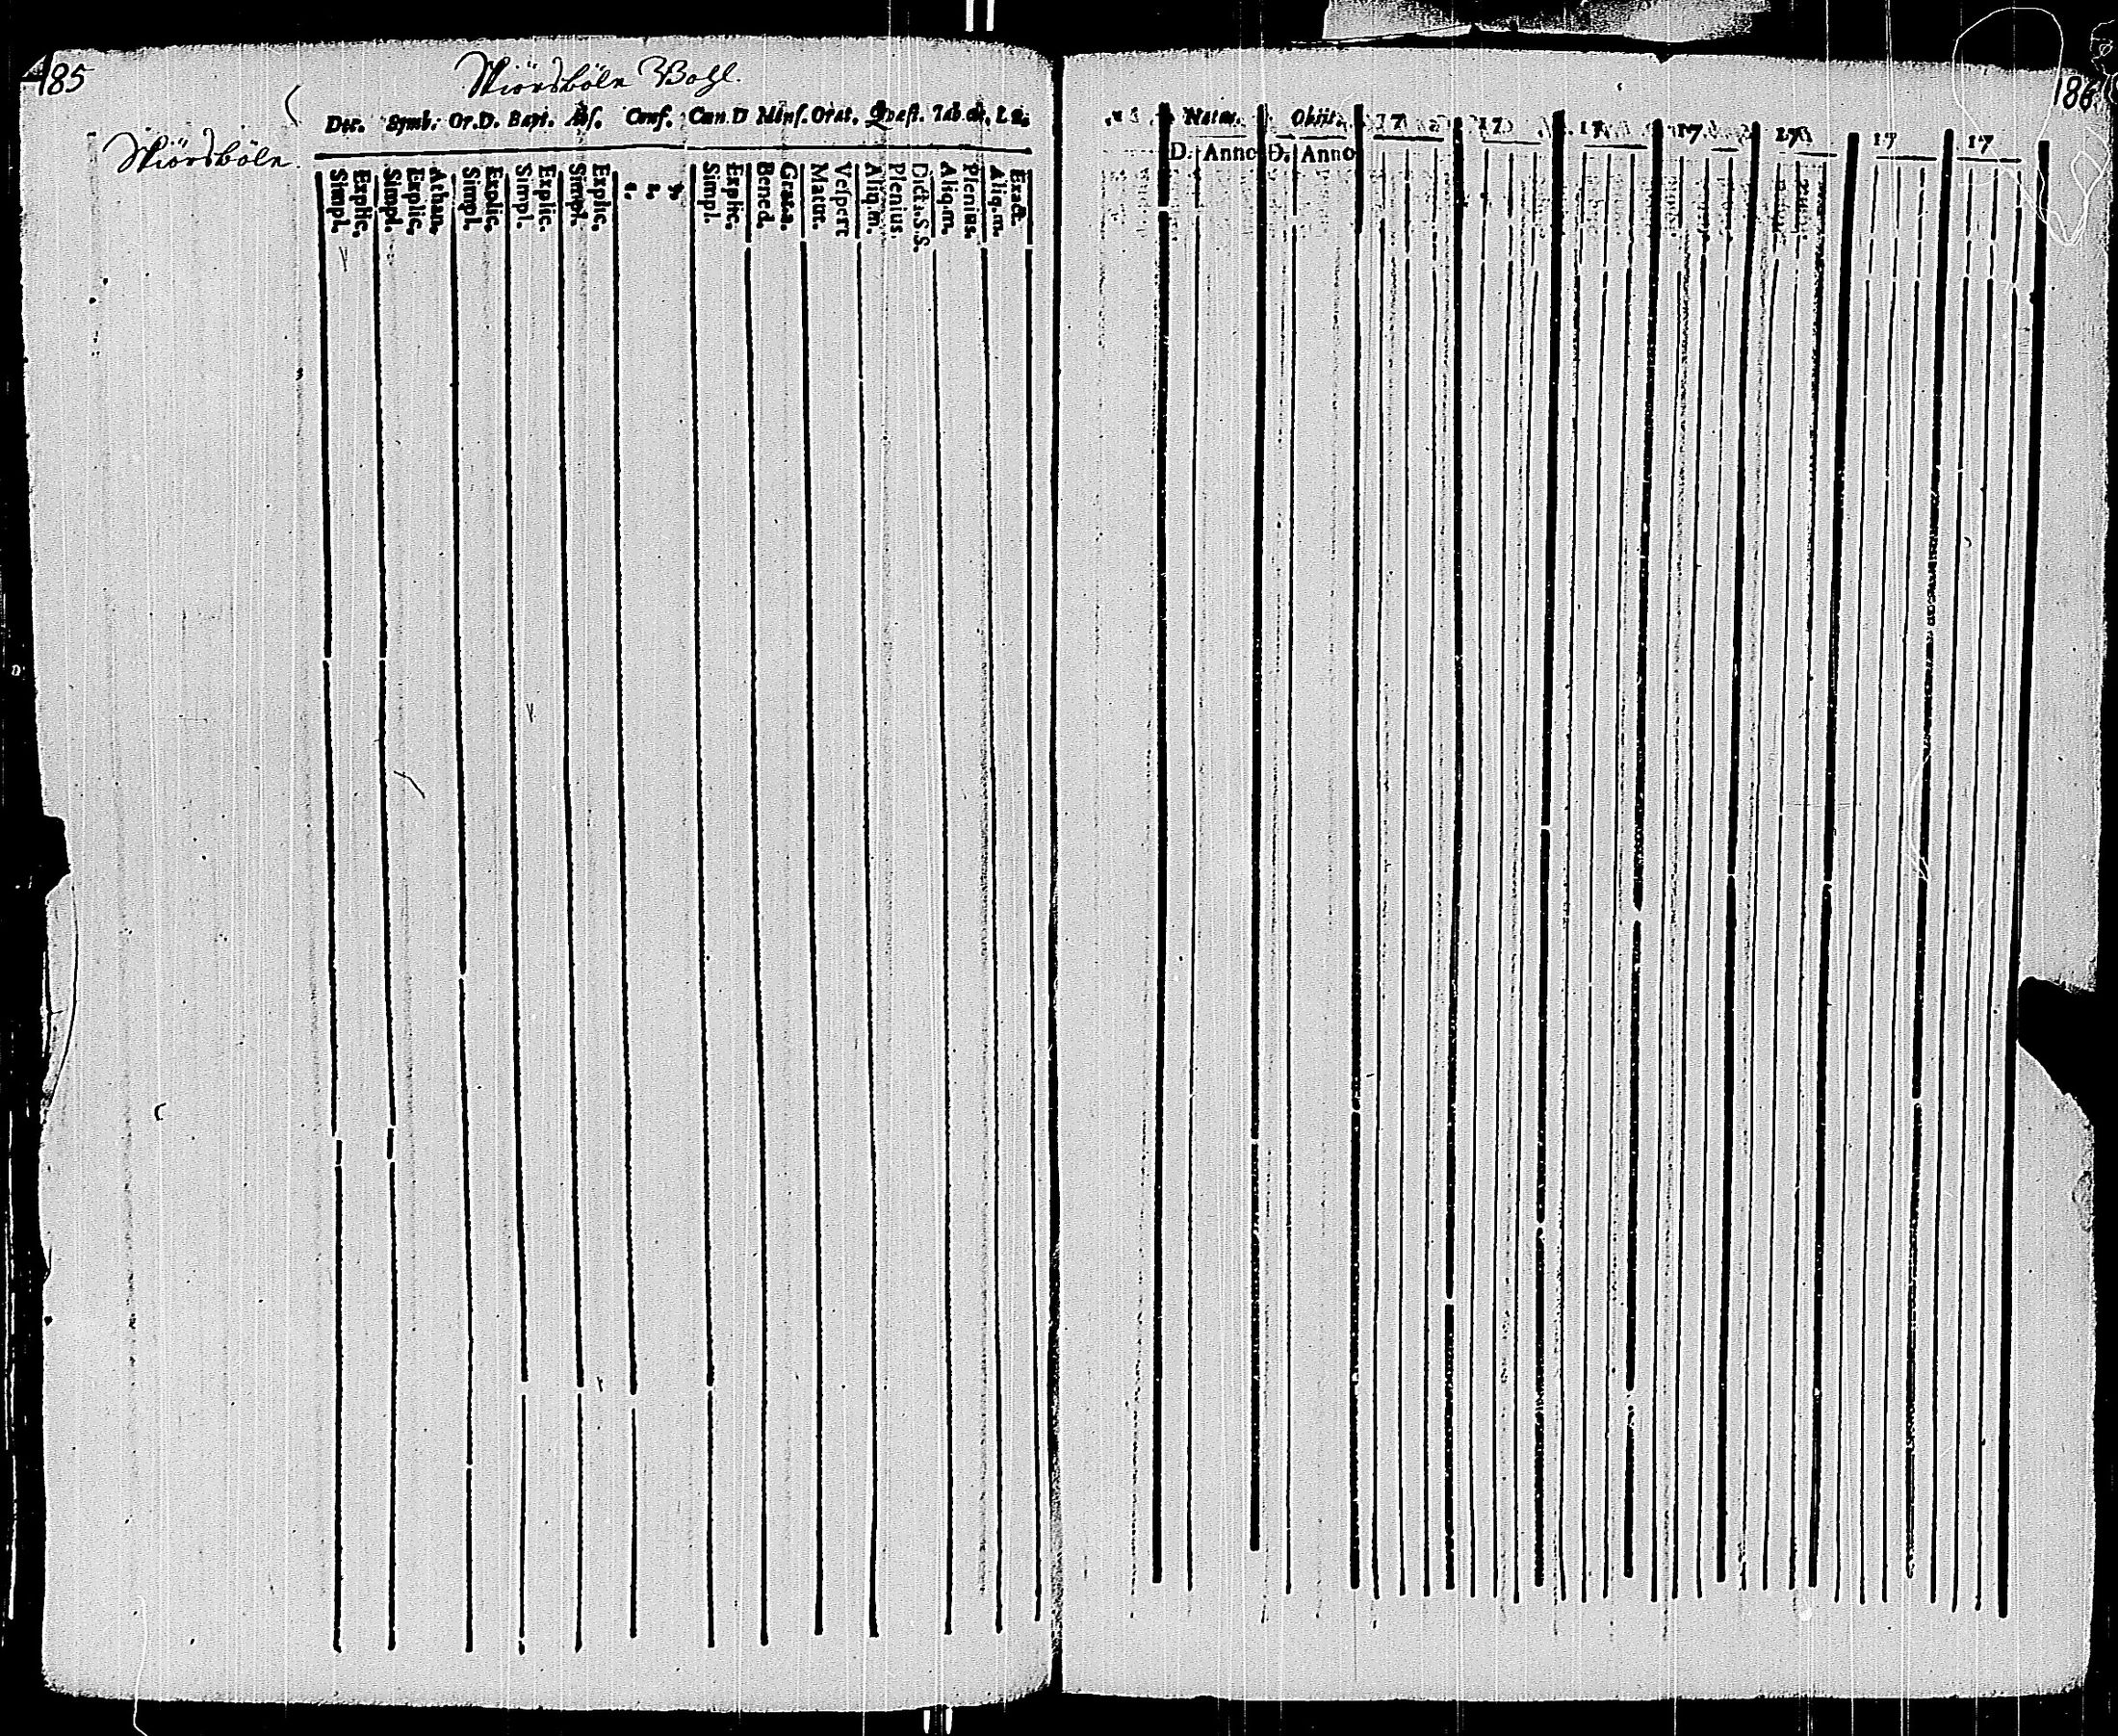 185
Skiörsböle Bohl.
Dec. Symb. Or.D. Bapt. Abs. Conf. Cœn.D Mens. Orat. Qvæst. Tab.œc. L.n.
Skiörsböle.
Simpl. Explic. Simpl. Explic. Athan. Simpl. Explic. Simpl. Explic. Simpl. Explic. 1. 2. 3. Simpl. Explic. Bened. Grat.a. Matut. Vespert Aliq.m. Plenius Dicta.S.S. Aliq.m. Plenius. Aliq.m. Exact.
186
Natus. Obiit. 17 17 17 17 17 17 17
D. Anno D. Anno